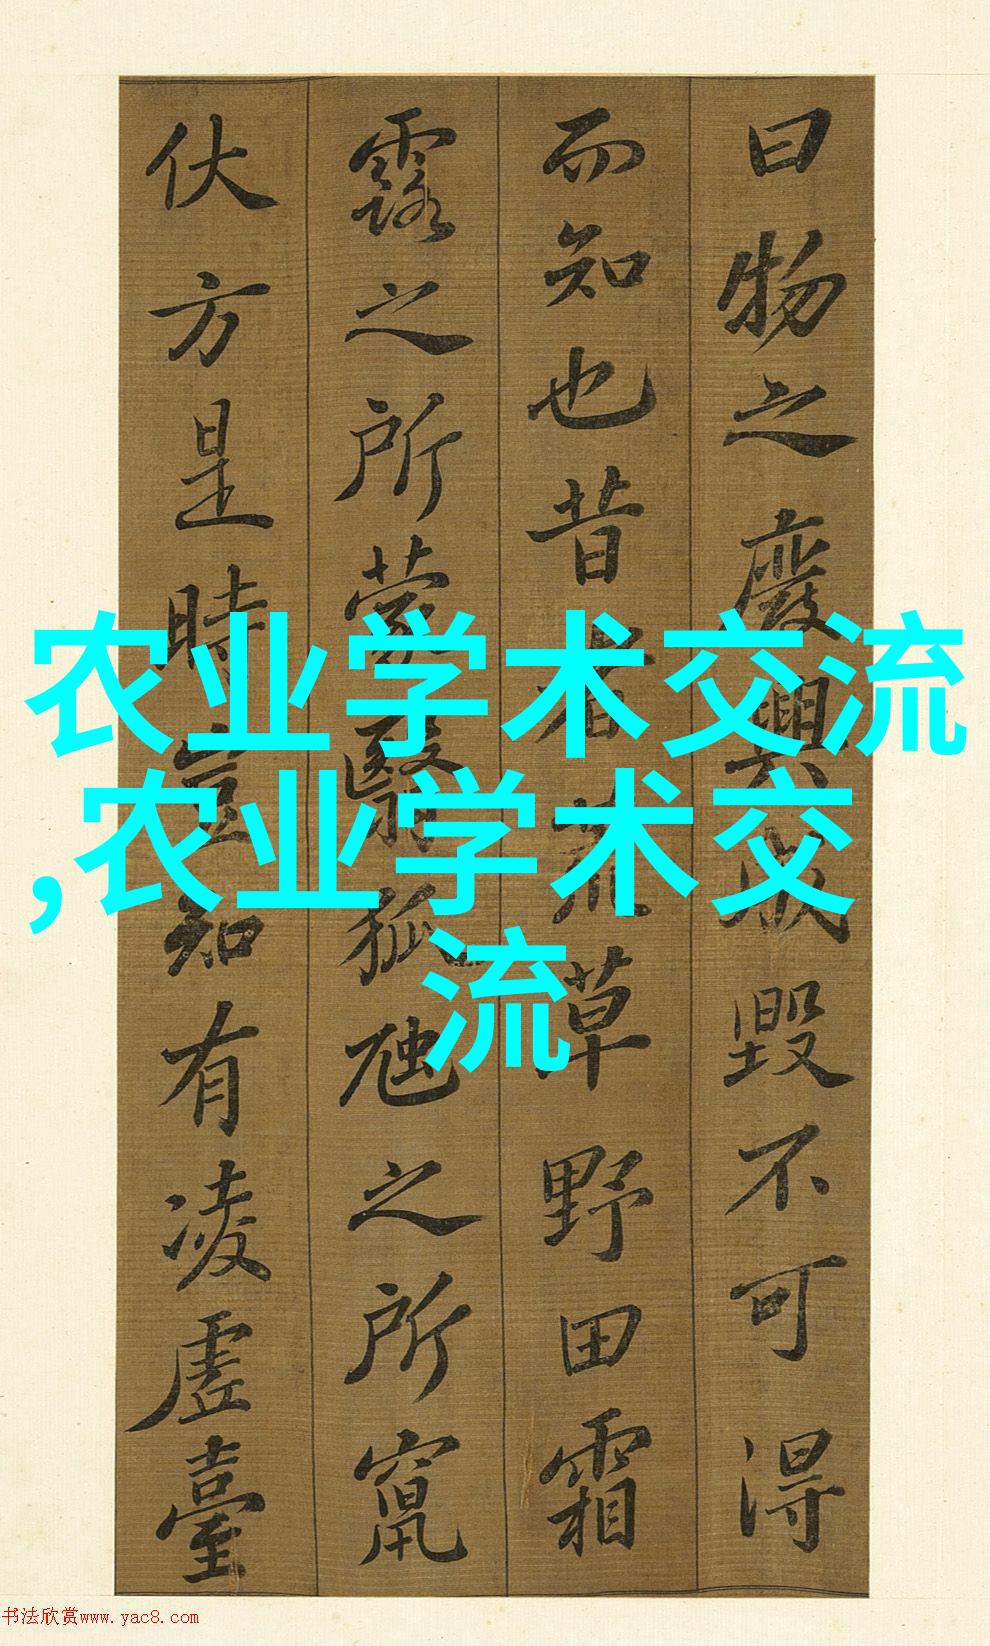 曰物之廢興成毀不可得
而知也昔者荒草野田霜
露之所蒙翳狐虺之所竄
伏方是時豈知有凌虛臺
农业学术交流
,农业学术交
流
书法欣赏www.yac8.com